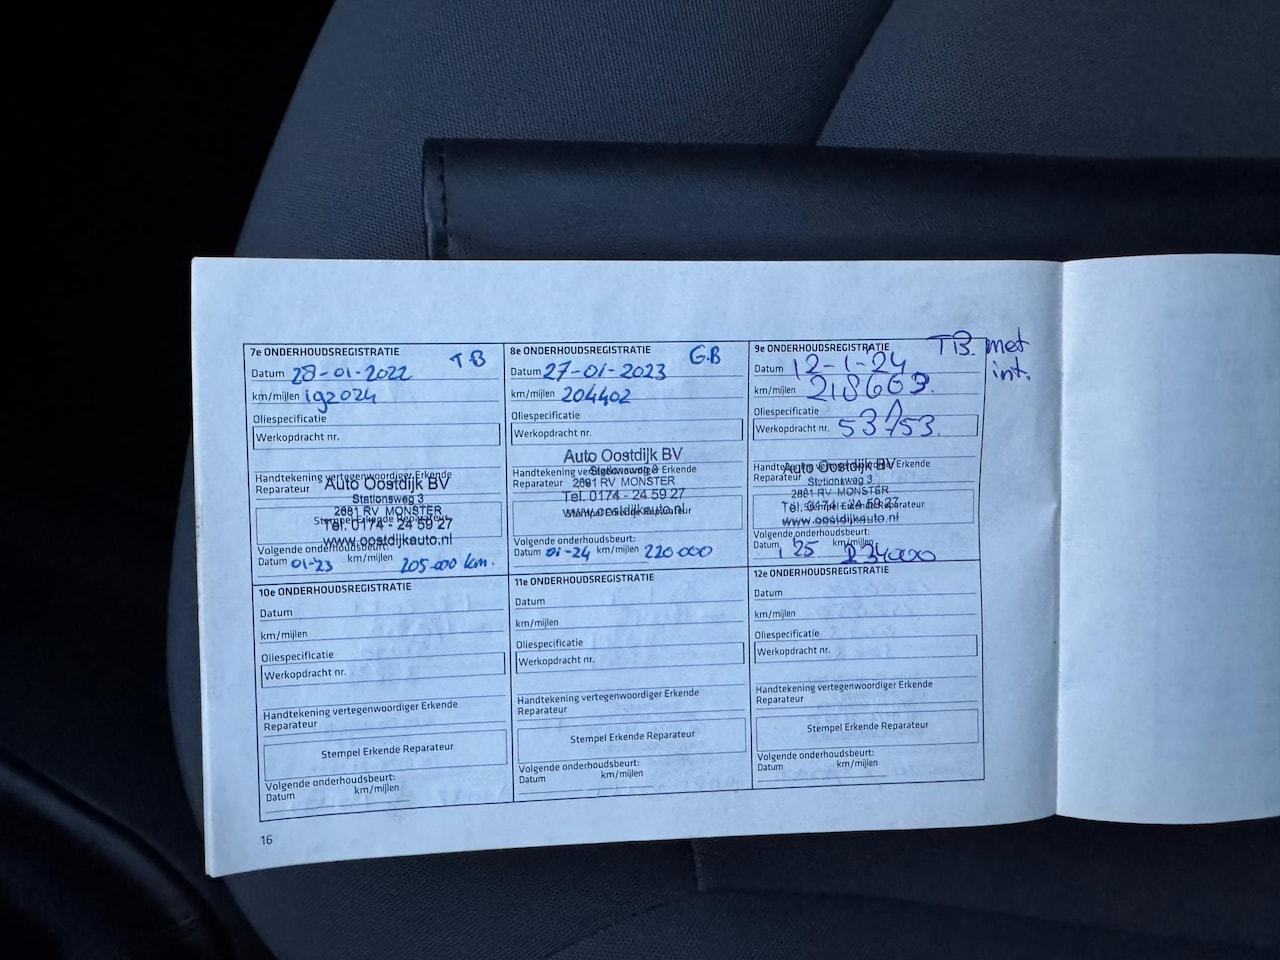 7e ONDERHOUDSREGISTRATIE TB
Datum 28-01-2022
km/mijlen 192024
Oliespecificatie
Werkopdracht nr.
Handtekening vertegenwoordiger Erkende
Reparateur
Auto Oostdijk BV
Stationsweg 3
2681 RV MONSTER
Stempel Erkende Reparateur
Tel. 0174 - 24 59 27
www.oostdijkauto.nl
Volgende onderhoudsbeurt:
Datum 01-23 km/mijlen 205.000 km.
8e ONDERHOUDSREGISTRATIE GB
Datum 27-01-2023
km/mijlen 204402
Oliespecificatie
Werkopdracht nr.
Auto Oostdijk BV
Handtekening vertegenwoordiger Erkende
Stationsweg 3
Reparateur
2681 RV MONSTER
Tel. 0174 - 24 59 27
Stempel Erkende Reparateur
www.oostdijkauto.nl
Volgende onderhoudsbeurt:
Datum 01-24 km/mijlen 220000
9e ONDERHOUDSREGISTRATIE TB. met
int.
Datum 12-1-24
km/mijlen 218603.
Oliespecificatie
Werkopdracht nr. 53753.
Handtekening vertegenwoordiger Erkende
Reparateur
Auto Oostdijk BV
Stationsweg 3
2681 RV MONSTER
Tel. 0174 - 24 59 27
Stempel Erkende Reparateur
www.oostdijkauto.nl
Volgende onderhoudsbeurt:
Datum 1 25 km/mijlen 234000
10e ONDERHOUDSREGISTRATIE
Datum
km/mijlen
Oliespecificatie
Werkopdracht nr.
Handtekening vertegenwoordiger Erkende
Reparateur
Stempel Erkende Reparateur
Volgende onderhoudsbeurt:
Datum km/mijlen
11e ONDERHOUDSREGISTRATIE
Datum
km/mijlen
Oliespecificatie
Werkopdracht nr.
Handtekening vertegenwoordiger Erkende
Reparateur
Stempel Erkende Reparateur
Volgende onderhoudsbeurt:
Datum km/mijlen
12e ONDERHOUDSREGISTRATIE
Datum
km/mijlen
Oliespecificatie
Werkopdracht nr.
Handtekening vertegenwoordiger Erkende
Reparateur
Stempel Erkende Reparateur
Volgende onderhoudsbeurt:
Datum km/mijlen
16